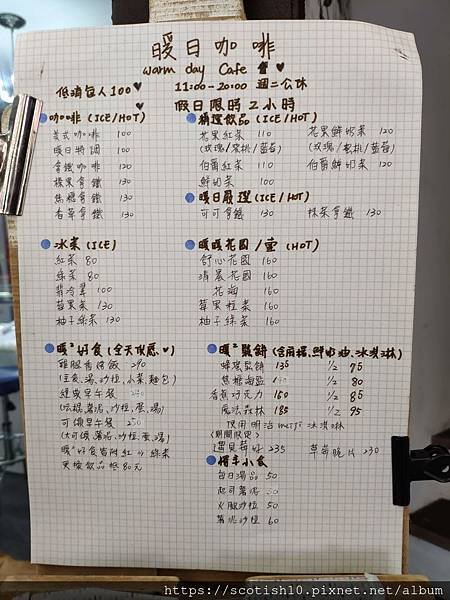 暖日咖啡
warm day Cafe
低消每人100
11:00-20:00 週二公休
假日限時2小時
咖啡(ICE/HOT)
美式咖啡 100
暖日特調 100
拿鐵咖啡 120
榛果拿鐵 130
焦糖拿鐵 130
香草拿鐵 130
精選飲品(ICE/HOT)
花果紅茶 110
(玫瑰/蜜桃/藍莓)
伯爵紅茶 110
鮮奶茶 100
花果鮮奶茶 120
(玫瑰/蜜桃/藍莓)
伯爵鮮奶茶 120
暖日嚴選(ICE/HOT)
可可拿鐵 130
抹茶拿鐵 130
冰茶(ICE)
紅茶 80
綠茶 80
翡冷翠 100
莓果茶 130
柚子綠茶 130
暖暖花園/蜜 (HOT)
舒心花園 160
清晨花園 160
花海 160
莓果粒茶 160
柚子綠茶 160
暖²好食(全天供應)
290
(主食、湯、沙拉、小菜、麵包)
早午餐
可頌早午餐 250
(大可頌、薯泥、沙拉、蛋、湯)
暖²好食皆附紅or綠茶
更換飲品抵80元
暖²鬆餅(含有糖、鮮奶油、冰淇淋)
蜂蜜鬆餅 135 1/2 75
焦糖海鹽 1/2 80
香蕉巧克力 160 1/2 85
魔法森林 185 1/2 95
使用明治meiji冰淇淋
(期間限定)
235
草莓脆片 230
暖手小食
每日湯品 50
起司薯泥 50
火腿沙拉 50
薯泥沙拉 60
https://scotish10.pixnet.net/album